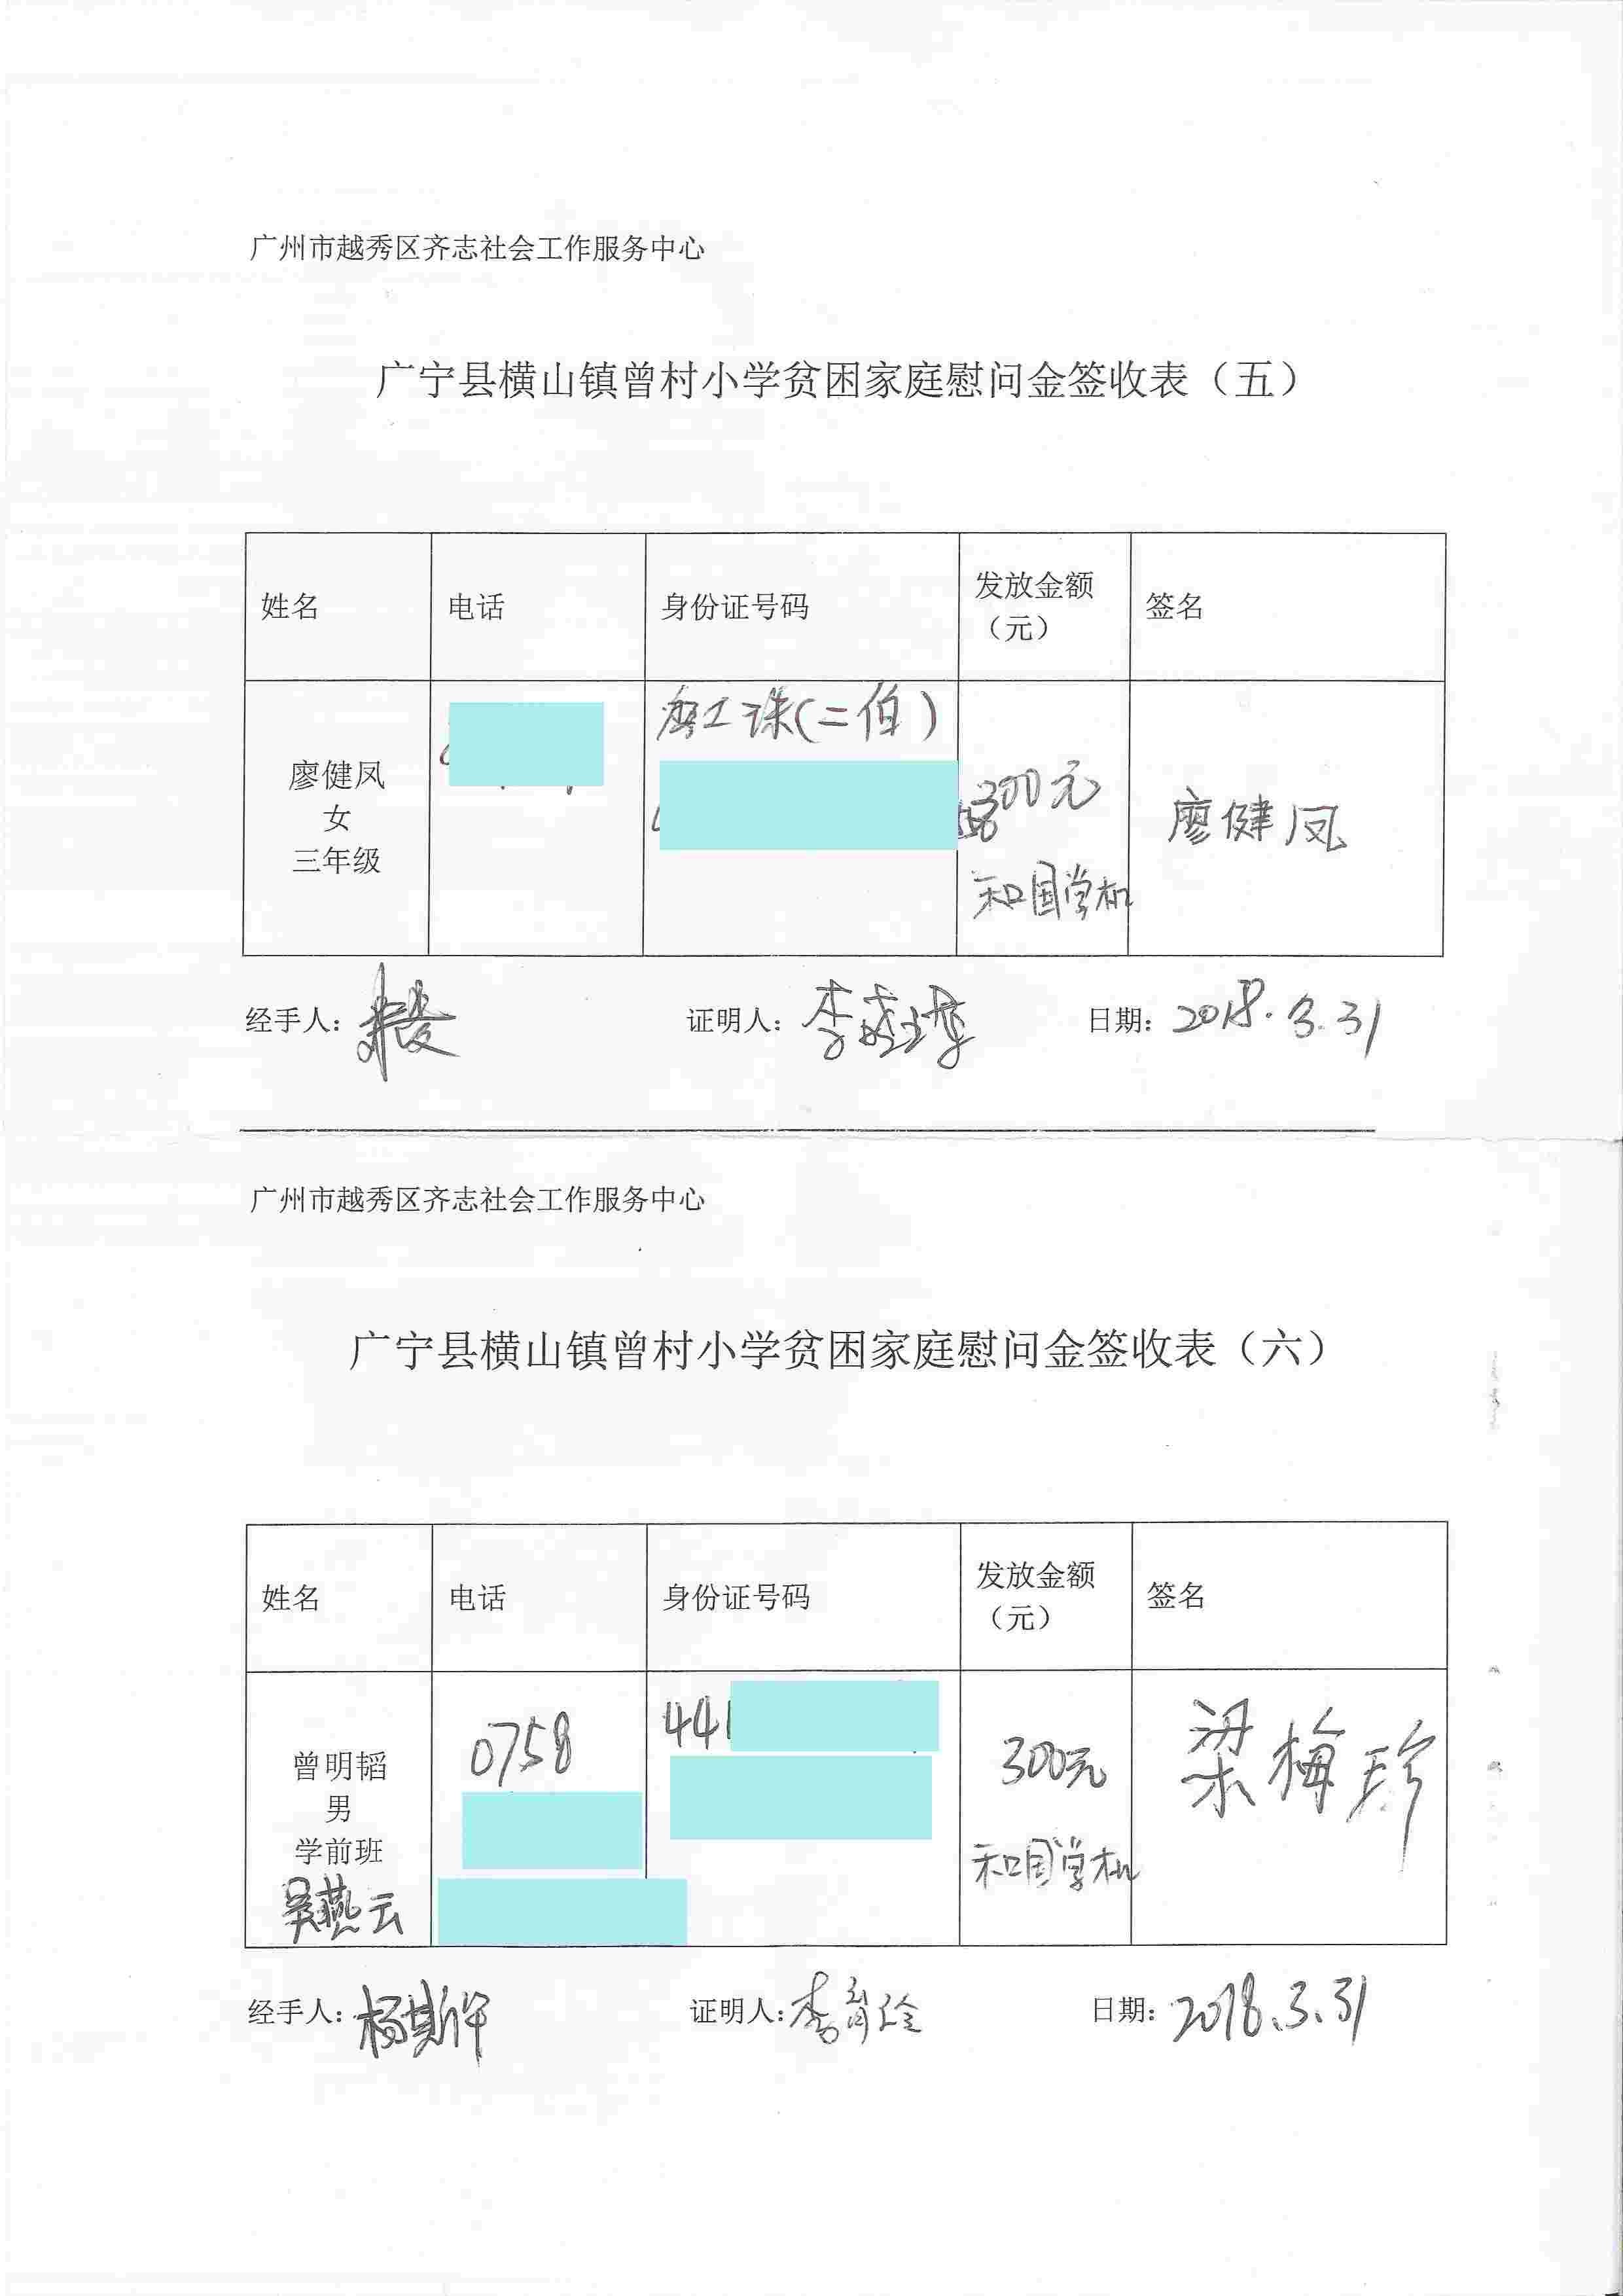 广州市越秀区齐志社会工作服务中心
广宁县横山镇曾村小学贫困家庭慰问金签收表（五）
姓名 电话 身份证号码 发放金额（元） 签名
(二伯)
廖健凤
女
三年级
300元
和国学机
廖健凤
经手人：
证明人：李
日期：2018.3.31
广州市越秀区齐志社会工作服务中心
广宁县横山镇曾村小学贫困家庭慰问金签收表（六）
姓名 电话 身份证号码 发放金额（元） 签名
曾明韬
男
学前班
吴燕云
0758
441
300元
和国学机
梁梅珍
经手人：杨
证明人：李
日期：2018.3.31